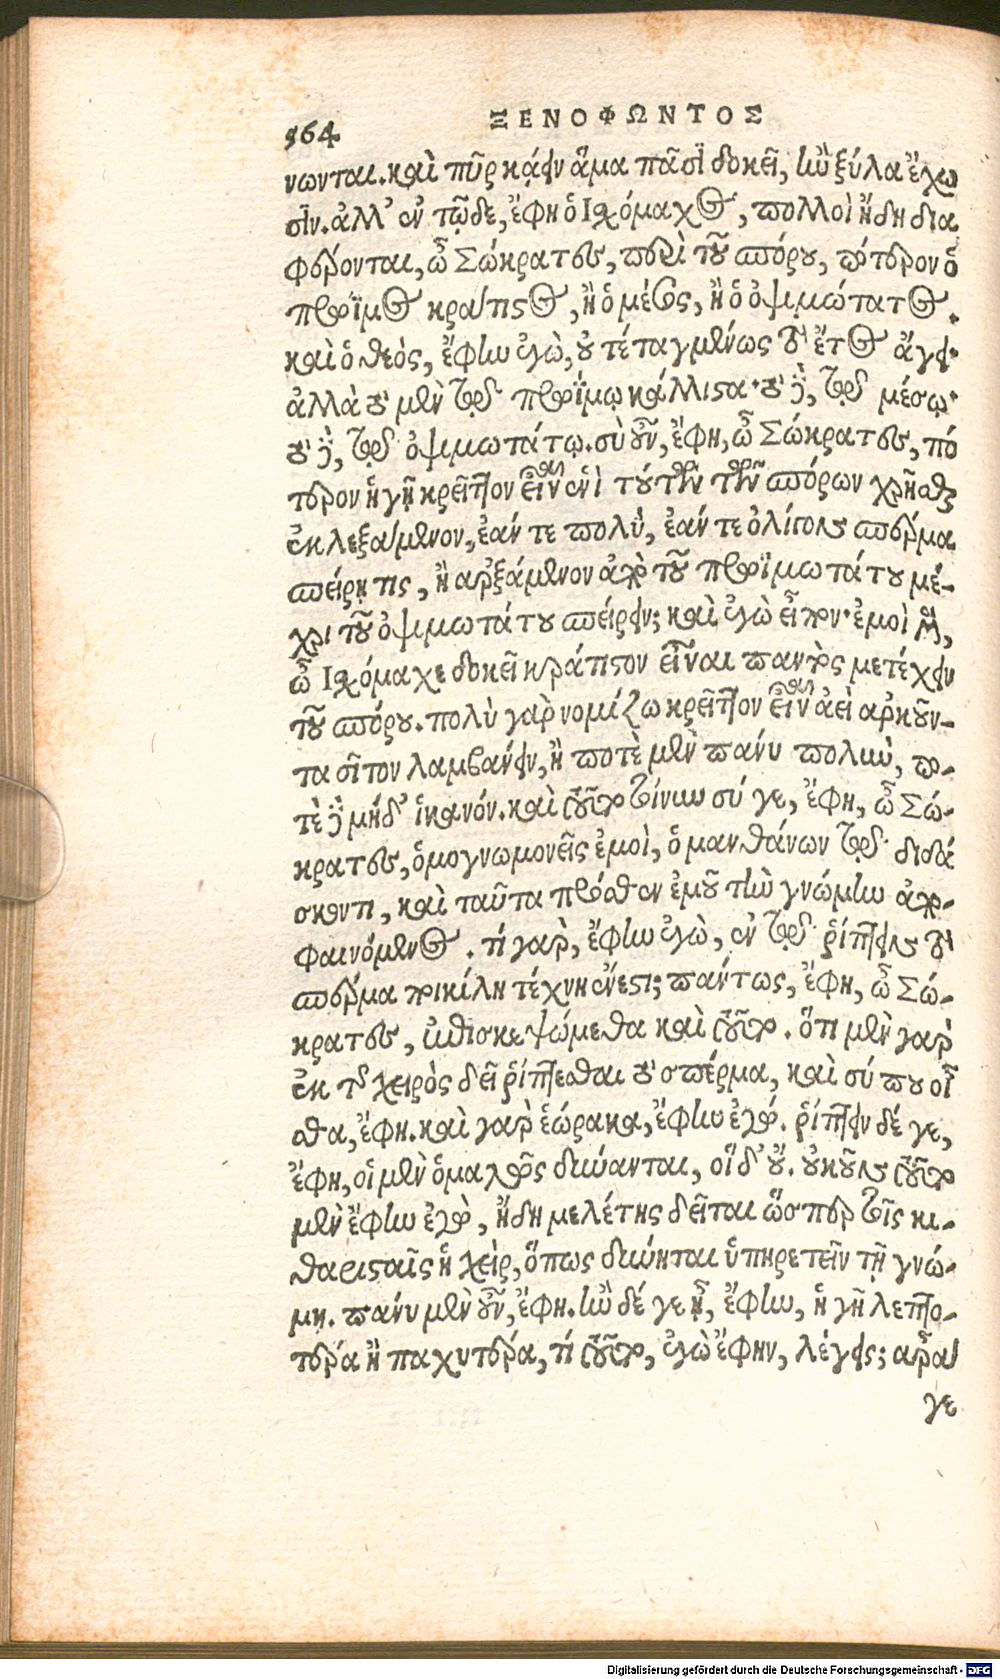 564 ΞΕΝΟΦΩΝΤΟΣ
νωνται. καὶ πῦρ κάειν ἅμα πᾶσι δοκεῖ, ἢν ξύλα ἔχω
σιν. ἀλλ' ἐν τῷδε, ἔφη ὁ Ἰσχόμαχος, πολλοὶ ἤδη δια
φέρονται, ὦ Σώκρατες, περὶ τοῦ σπόρου, πότερον ὁ
πρώϊμος κράτιστος, ἢ ὁ μέσος, ἢ ὁ ὀψιμώτατος.
καὶ ὁ θεὸς, ἔφην ἐγὼ, οὐ τεταγμένως τὸ ἔτος ἄγει·
ἀλλὰ τὸ μὲν τῷ πρωΐμῳ κάλλιστα· τὸ δὲ, τῷ μέσῳ·
τὸ δὲ, τῷ ὀψιμωτάτῳ. σὺ οὖν, ἔφη, ὦ Σώκρατες, πό
τερον ἡγῇ κρεῖττον εἶναι ἑνὶ τούτων τῶν σπόρων χρῆσθαι
ἐκλεξάμενον, ἐάν τε πολὺ, ἐάν τε ὀλίγον σπέρμα
σπείρῃ τις, ἢ ἀρξάμενον ἀπὸ τοῦ πρωϊμωτάτου μέ-
χρι τοῦ ὀψιμωτάτου σπείρειν; καὶ ἐγὼ εἶπον· ἐμοὶ μὲν,
ὦ Ἰσχόμαχε δοκεῖ κράτιστον εἶναι παντὸς μετέχειν
τοῦ σπόρου. πολὺ γὰρ νομίζω κρεῖττον εἶναι ἀεὶ ἀρκοῦν-
τα σῖτον λαμβάνειν, ἢ ποτὲ μὲν πάνυ πολὺν, πο-
τὲ δὲ μήδ' ἱκανόν. καὶ τοῦτο τοίνυν σύ γε, ἔφη, ὦ Σώ-
κρατες, ὁμογνωμονεῖς ἐμοὶ, ὁ μανθάνων τῷ διδά
σκοντι, καὶ ταῦτα πρόσθεν ἐμοῦ τὴν γνώμην ἀπο-
φαινόμενος. τί γὰρ, ἔφην ἐγὼ, ἐν τῷ ῥίπτειν τὸ
σπέρμα ποικίλη τέχνη ἔνεστι; πάντως, ἔφη, ὦ Σώ-
κρατες, ἐπισκεψώμεθα καὶ τοῦτο. ὅτι μὲν γὰρ
ἐκ τῆς χειρὸς δεῖ ῥίπτεσθαι τὸ σπέρμα, καὶ σύ που οἶ
σθα, ἔφη. καὶ γὰρ ἑώρακα, ἔφην ἐγώ. ῥίπτειν δέ γε,
ἔφη, οἱ μὲν ὁμαλῶς δύνανται, οἱ δ' οὔ. οὐκοῦν τοῦτο
μὲν ἔφην ἐγὼ, ἤδη μελέτης δεῖται ὥσπερ τοῖς κι-
θαρισταῖς ἡ χεὶρ, ὅπως δύνηται ὑπηρετεῖν τῇ γνώ-
μῃ. πάνυ μὲν οὖν, ἔφη. ἢν δέ γε ᾖ, ἔφην, ἡ γῆ λεπτο-
τέρα ἢ παχυτέρα, τί τοῦτο, ἐγὼ ἔφην, λέγεις; ἆρά
γε
Digitalisierung gefördert durch die Deutsche Forschungsgemeinschaft - DFG